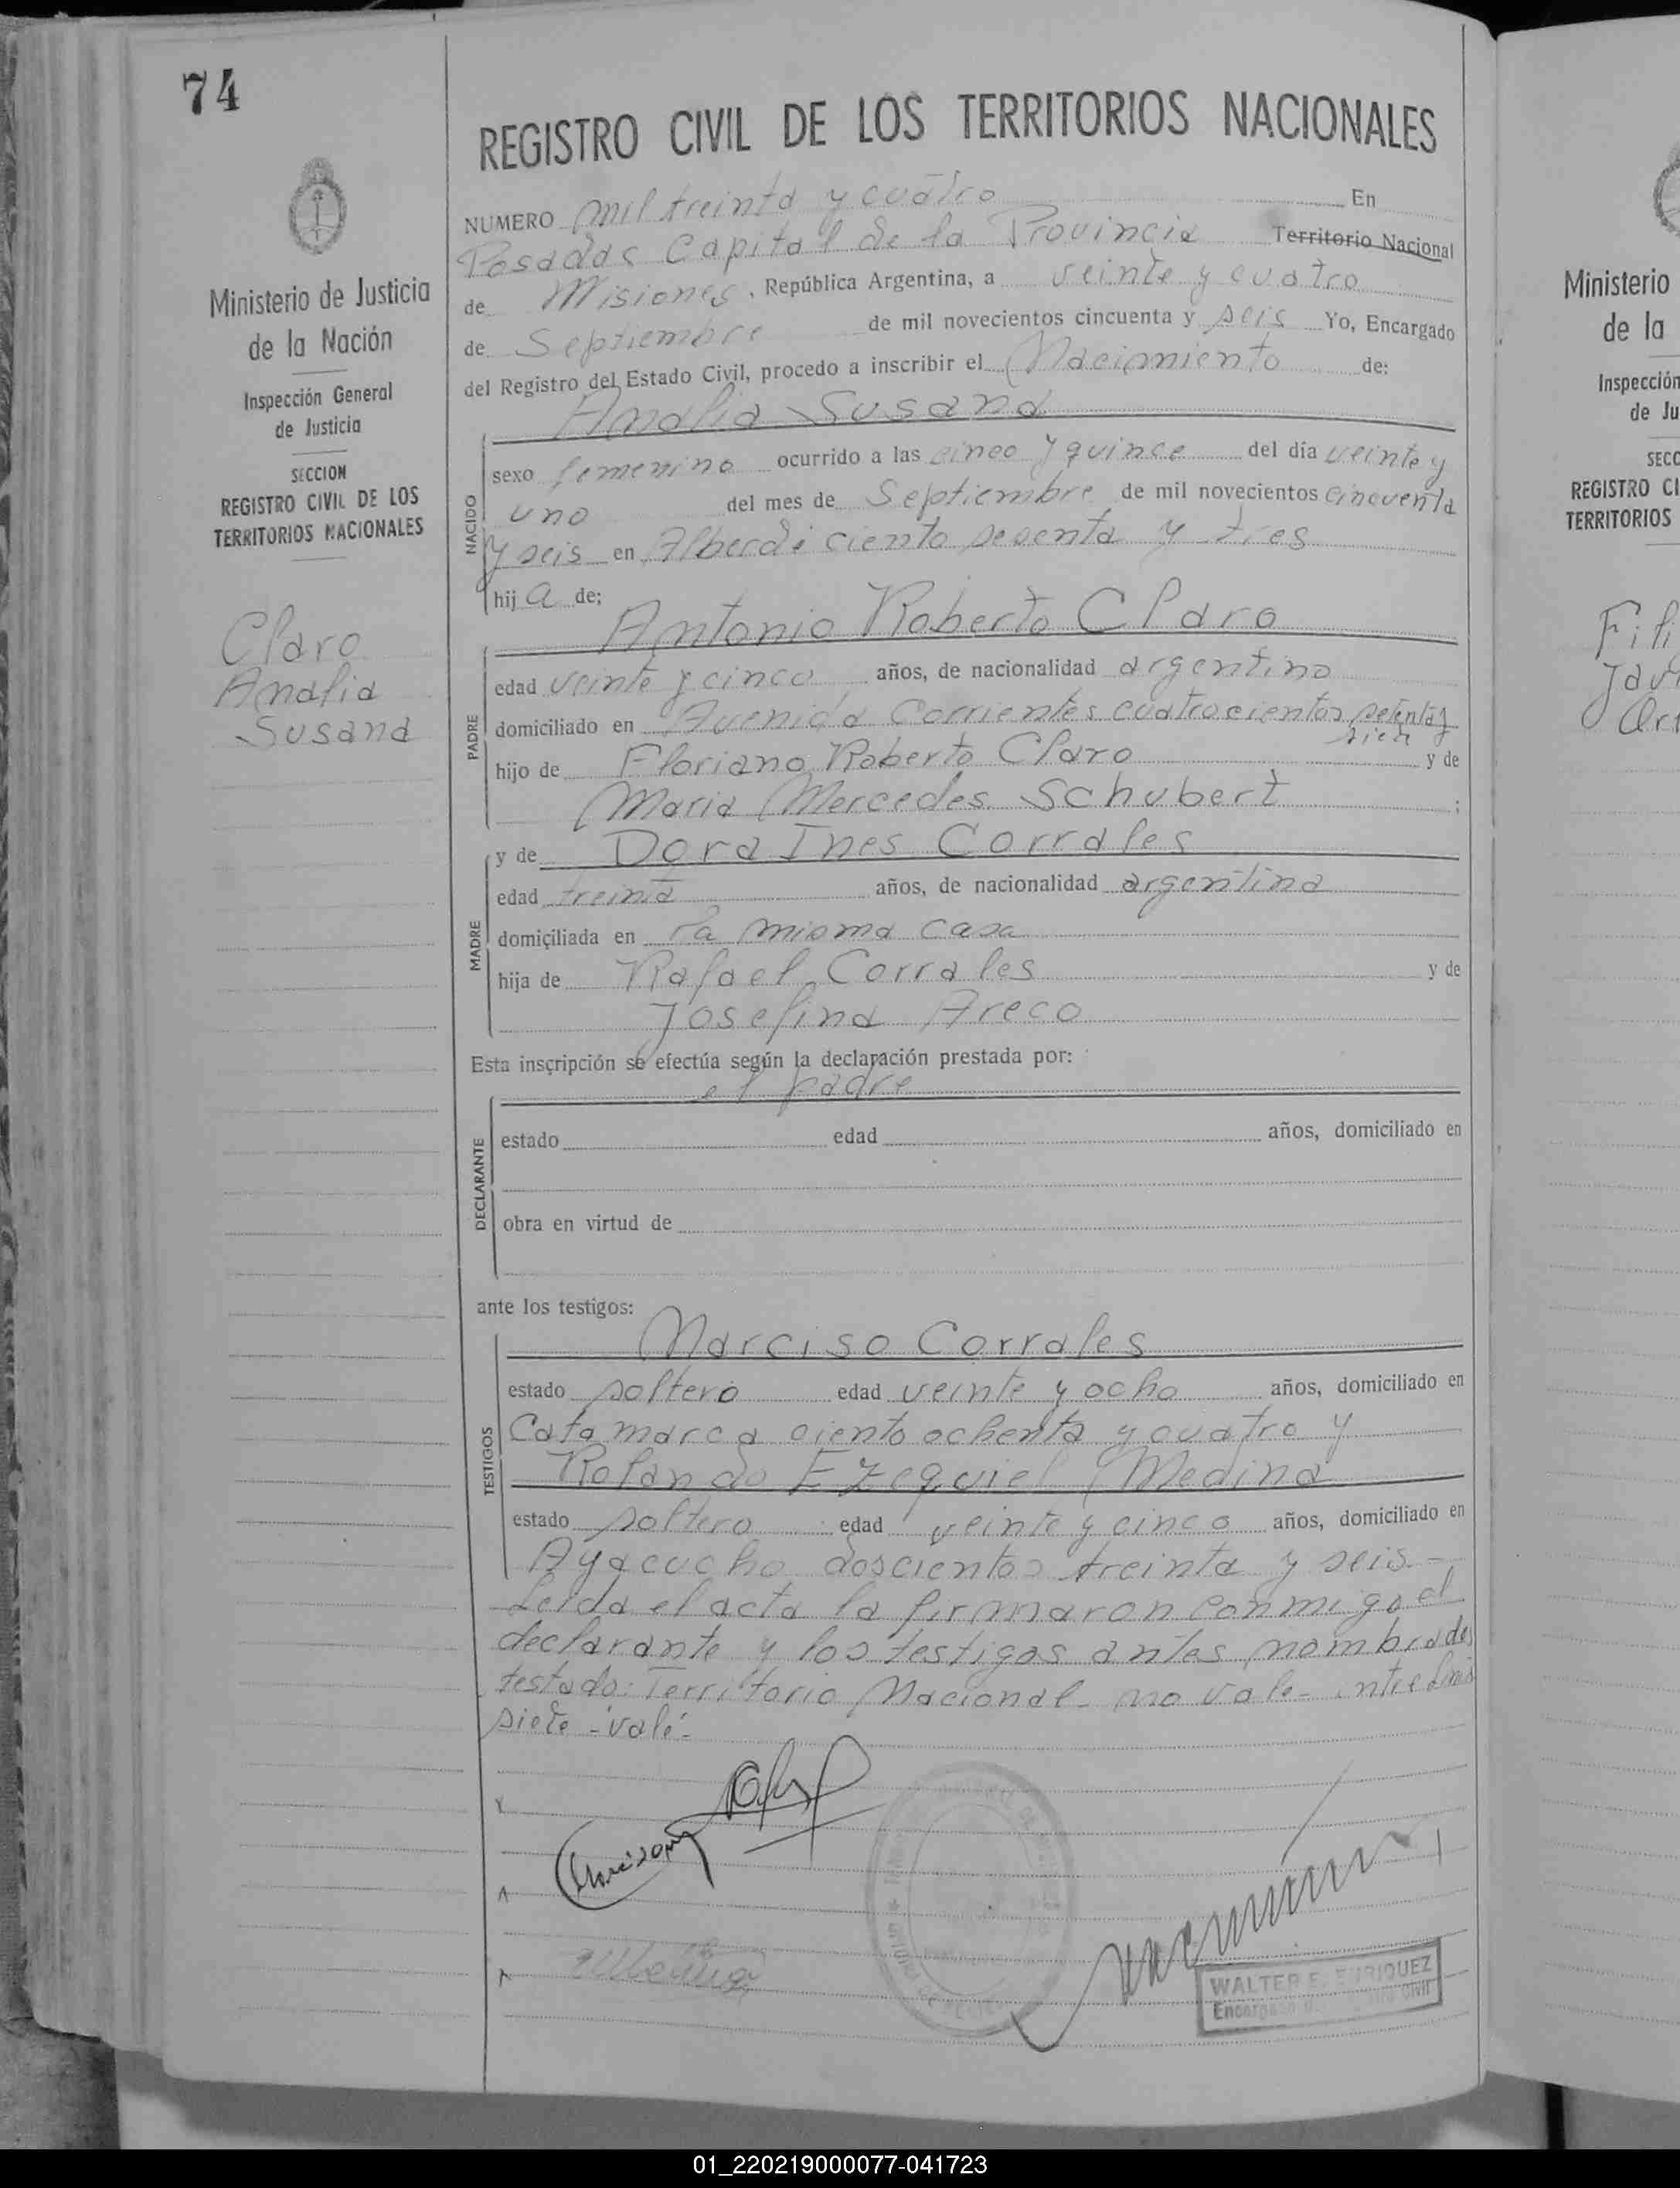 74
REGISTRO CIVIL DE LOS TERRITORIOS NACIONALES
NUMERO mil treinta y cuatro En
Posadas Capital de la Provincia Territorio Nacional
de Misiones, República Argentina, a veinte y cuatro
de Septiembre de mil novecientos cincuenta y seis Yo, Encargado
del Registro del Estado Civil, procedo a inscribir el Nacimiento de:
Analia Susana
NACIDO
sexo femenino ocurrido a las cinco y quince del día veinte y
uno del mes de Septiembre de mil novecientos cincuenta
y seis en Alberdi ciento sesenta y tres
hija de;
Antonio Roberto Claro
PADRE
edad veinte y cinco años, de nacionalidad argentino
domiciliado en Avenida Corrientes cuatrocientos setenta y
siete
hijo de Floriano Roberto Claro y de
Maria Mercedes Schubert ;
MADRE
y de Dora Ines Corrales
edad treinta años, de nacionalidad argentina
domiciliada en la misma casa
hija de Rafael Corrales y de
Josefina Areco
Esta inscripción se efectúa según la declaración prestada por:
el padre
DECLARANTE
estado edad años, domiciliado en
obra en virtud de
ante los testigos:
Narciso Corrales
TESTIGOS
estado soltero edad veinte y ocho años, domiciliado en
Catamarca ciento ochenta y cuatro y
Rolando Ezequiel Medina
estado soltero edad veinte y cinco años, domiciliado en
Ayacucho doscientos treinta y seis-
Leida el acta la firmaron conmigo el
declarante y los testigos antes nombrados
testado: Territorio Nacional- no vale- entre linea
siete -vale-
WALTER E. ENRIQUEZ
Ministerio de Justicia
de la Nación
Inspección General
de Justicia
SECCION
REGISTRO CIVIL DE LOS
TERRITORIOS NACIONALES
Claro
Analia
Susana
Ministerio
de la
Inspección
de Ju
SECC
REGISTRO CI
TERRITORIOS
01_220219000077-041723